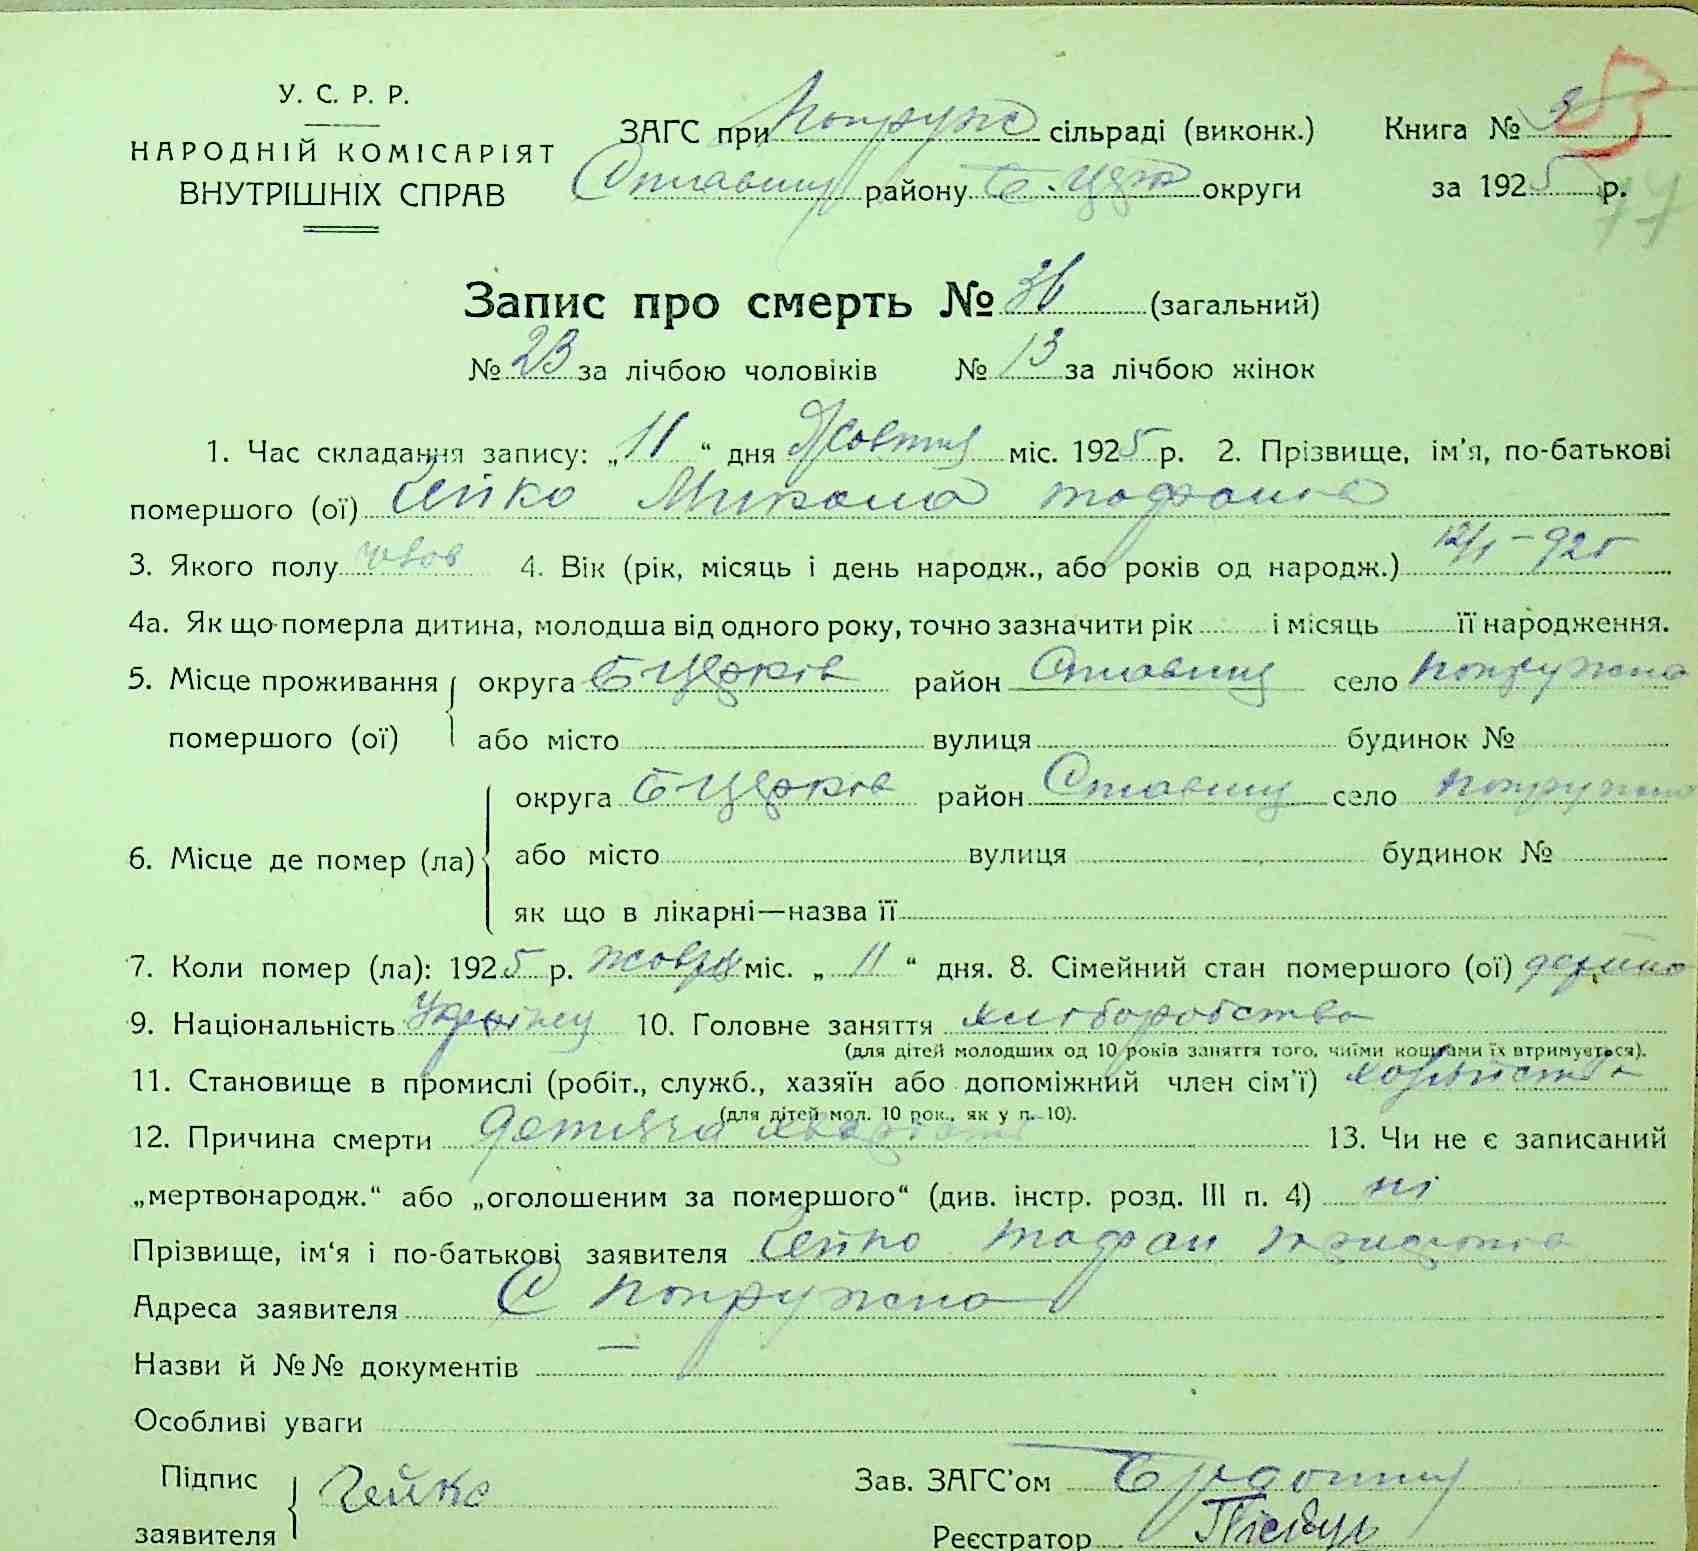 У. С. Р. Р.
НАРОДНІЙ КОМІСАРІЯТ
ВНУТРІШНІХ СПРАВ
ЗАГС при Попруж сільраді (виконк.) Книга № 3
Ставищ району Б. Церк округи за 1925 р.
Запис про смерть № 36 (загальний)
№ 23 за лічбою чоловіків № 13 за лічбою жінок
1. Час складання запису: „11“ дня Жовтня міс. 1925 р. 2. Прізвище, ім'я, по-батькові
помершого (ої) Гейко Микола
3. Якого полу чолов 4. Вік (рік, місяць і день народж., або років од народж.) 12/1 – 925
4а. Як що померла дитина, молодша від одного року, точно зазначити рік і місяць її народження.
5. Місце проживання округа Б Церків район Ставищ село Попружна
помершого (ої) або місто вулиця будинок №
округа Б Церків район Ставищ село Попружна
6. Місце де помер (ла) або місто вулиця будинок №
як що в лікарні—назва її
7. Коли помер (ла): 1925 р. жовтня міс. „11“ дня. 8. Сімейний стан помершого (ої)
9. Національність 10. Головне заняття хліборобство
(для дітей молодших од 10 років заняття того, чиїми коштами їх втримується).
11. Становище в промислі (робіт., служб., хазяїн або допоміжний член сім'ї)
(для дітей мол. 10 рок., як у п. 10).
12. Причина смерти 13. Чи не є записаний
„мертвонародж.“ або „оголошеним за помершого“ (див. інстр. розд. III п. 4) ні
Прізвище, ім'я і по-батькові заявителя Гейко
Адреса заявителя С Попружна
Назви й №№ документів —
Особливі уваги
Підпис Гейко Зав. ЗАГС'ом
заявителя Реєстратор